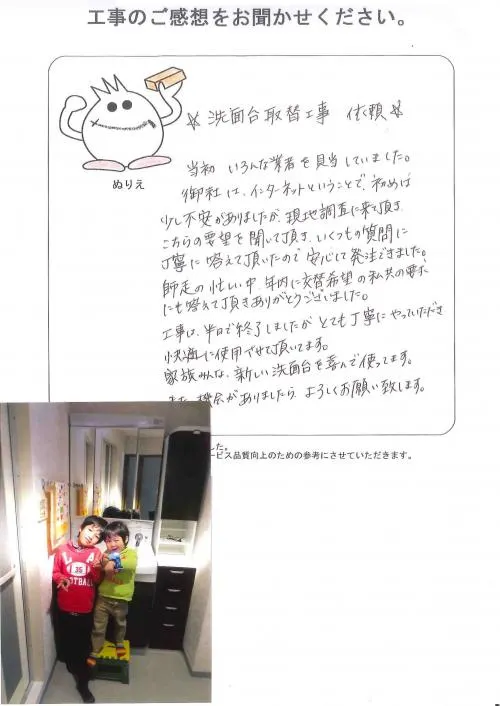 工事のご感想をお聞かせください。
ぬりえ
☆ 洗面台取替工事 依頼 ☆
当初 いろんな業者を見当していました。
御社は、インターネットということで、初めは
少し不安がありましたが、現地調査に来て頂き、
こちらの要望を聞いて頂き、いくつもの質問に
丁寧に答えて頂いたので安心して発注できました。
師走の忙しい中、年内に交替希望の私共の要求
にも答えて頂きありがとうございました。
工事は、半日で終了しましたが とても丁寧にやっていただき
快適に使用させて頂いてます。
家族みんな、新しい洗面台を喜んで使ってます。
機会がありましたら よろしくお願い致します。
した。
ービス品質向上のための参考にさせていただきます。
35
FOOTBALL